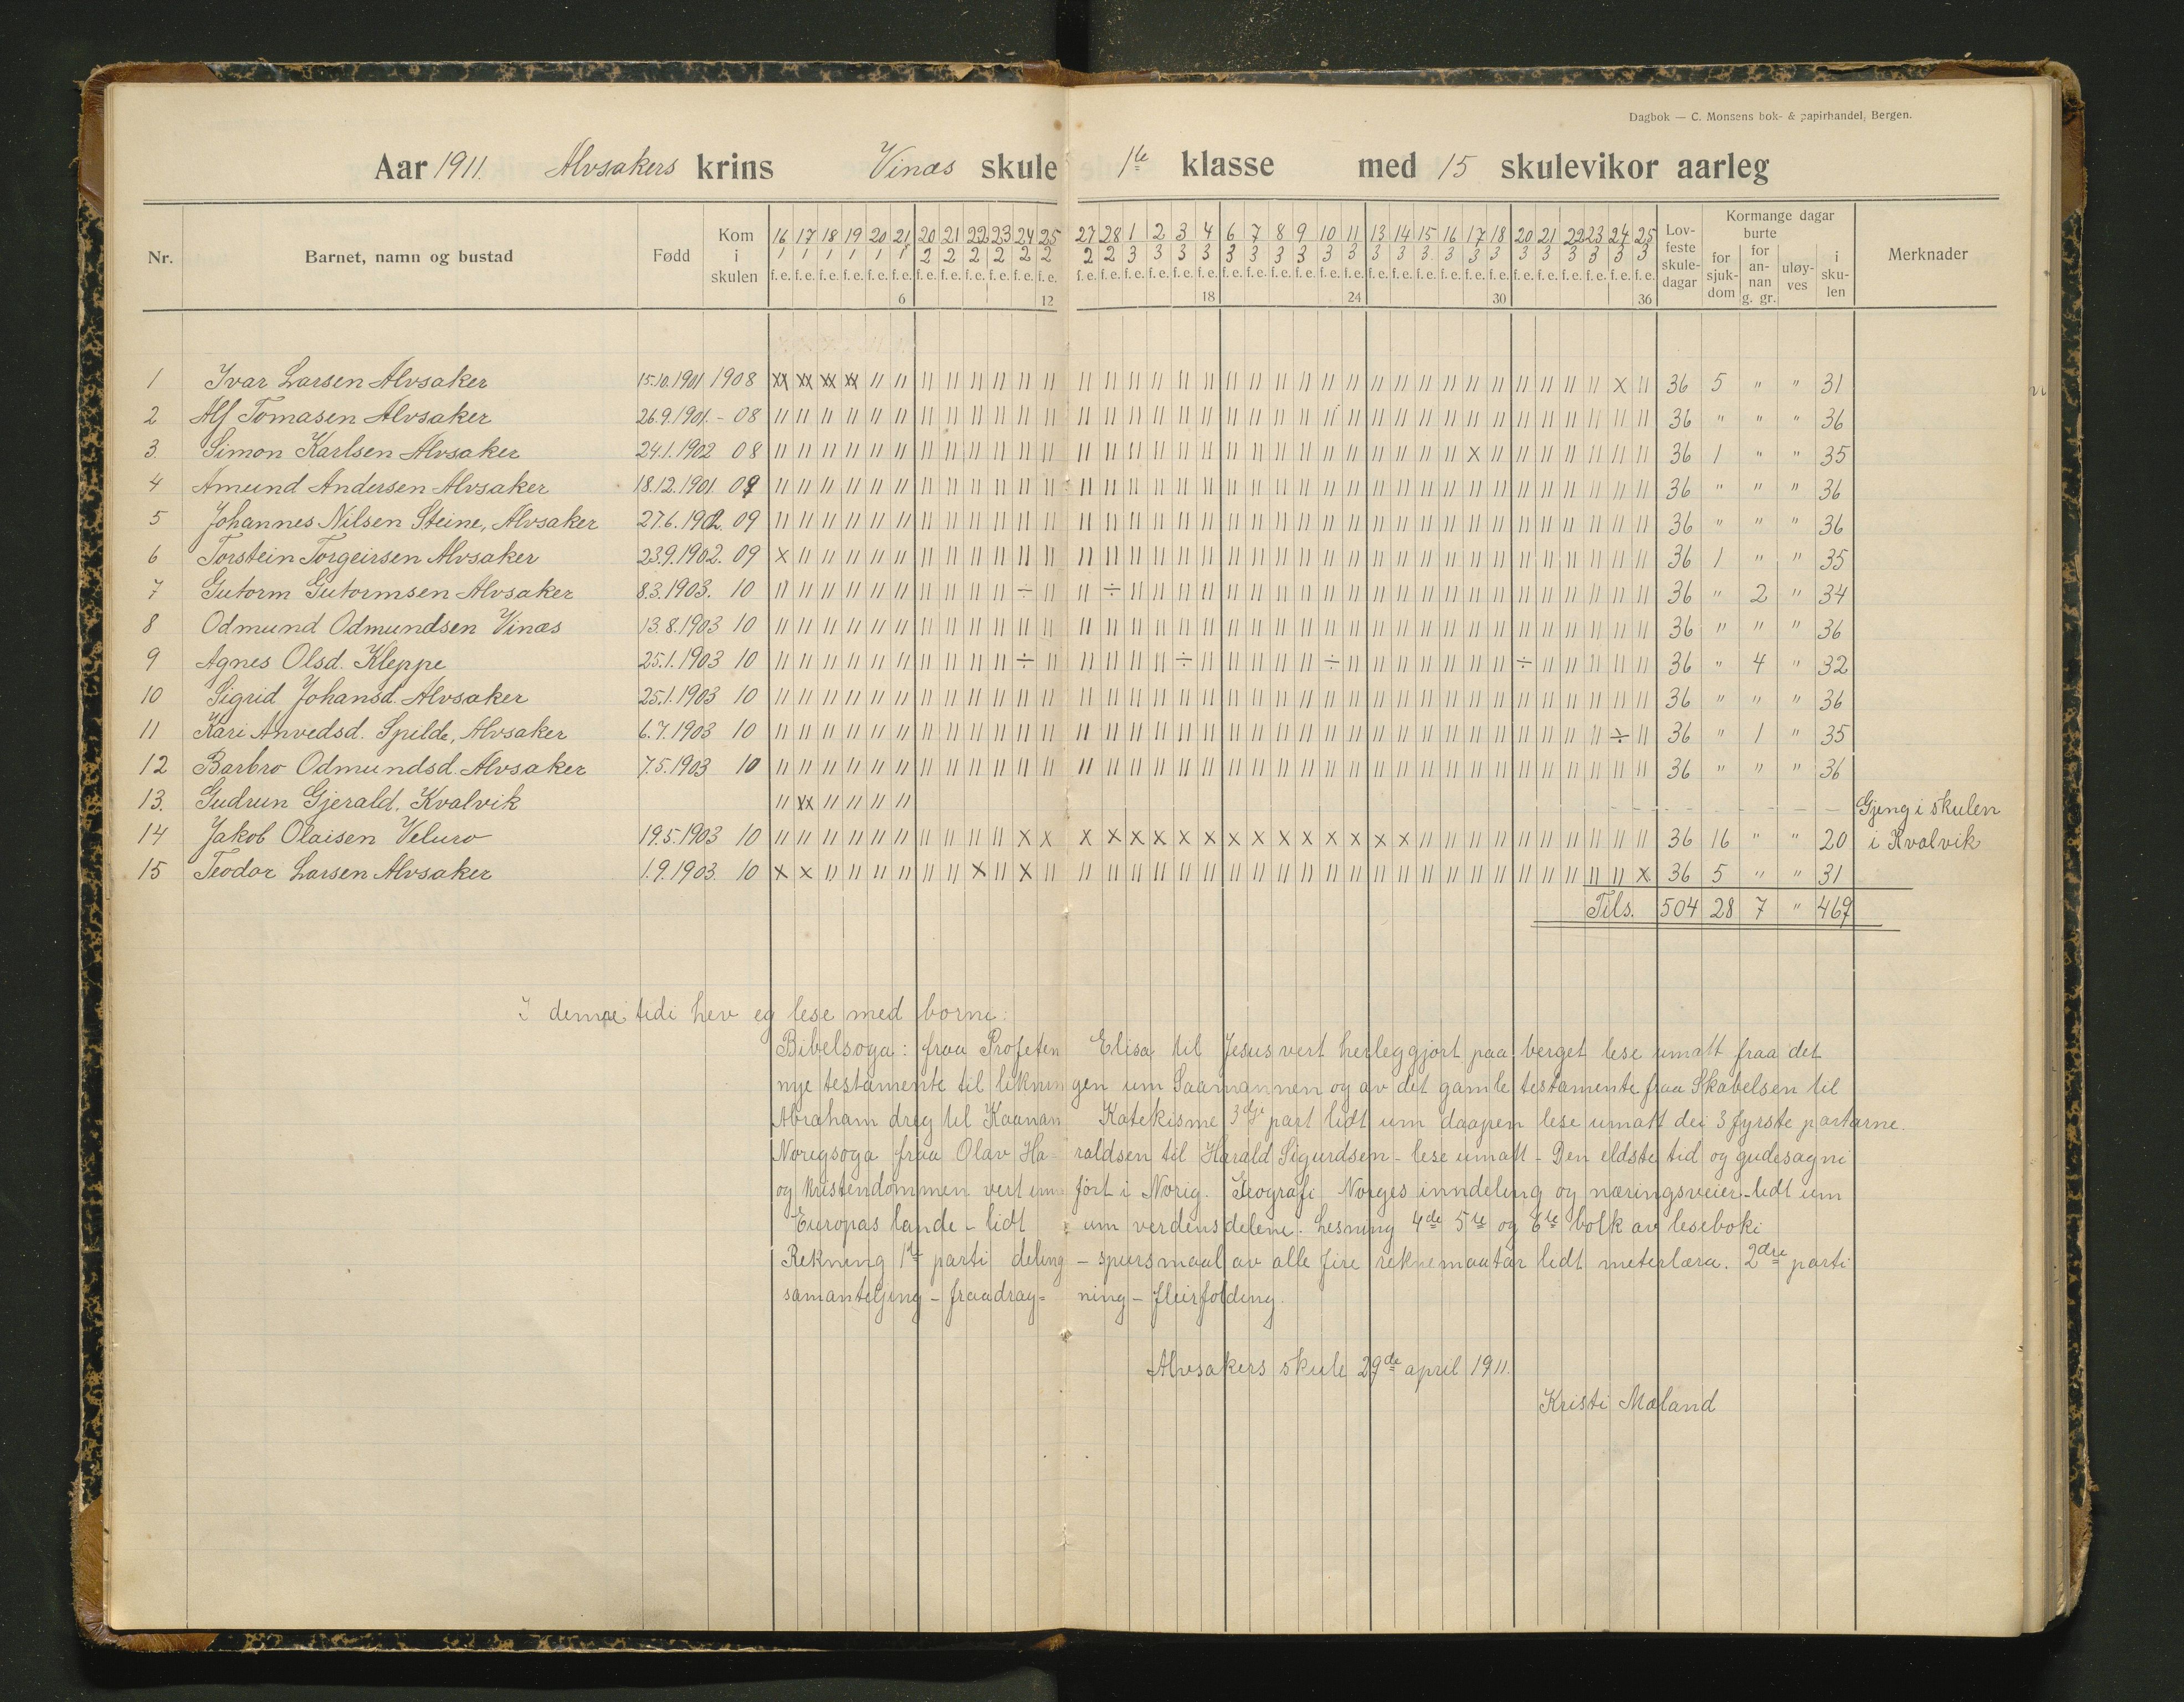 Dagbok — C. Monsens bok- & papirhandel, Bergen.
Aar 1911. Alvsakers krins Vinæs skule 1ste klasse med 15 skulevikor aarleg
Nr. Barnet, namn og bustad Född Kom i skulen Lovfeste skuledagar Kormange dagar burte for sjukdom for annan g. gr. uløyves i skulen Merknader
16 17 18 19 20 21 20 21 22 23 24 25 27 28 1 2 3 4 6 7 8 9 10 11 13 14 15 16 17 18 20 21 22 23 24 25
1 1 1 1 1 1 2 2 2 2 2 2 2 2 3 3 3 3 3 3 3 3 3 3 3 3 3 3 3 3 3 3 3 3 3 3
f. e. f. e. f. e. f. e. f. e. f. e. f. e. f. e. f. e. f. e. f. e. f. e. f. e. f. e. f. e. f. e. f. e. f. e. f. e. f. e. f. e. f. e. f. e. f. e. f. e. f. e. f. e. f. e. f. e. f. e. f. e. f. e. f. e. f. e. f. e. f. e.
6 12 18 24 30 36
1 Ivar Larsen Alvsaker 15.10.1901 1908 xx xx xx xx 11 11 11 11 11 11 11 11 11 11 11 11 11 11 11 11 11 11 11 11 11 11 11 11 11 11 11 11 11 11 x 11 36 5 " " 31
2 Alf Tomasen Alvsaker 26.9.1901. - 08 11 11 11 11 11 11 11 11 11 11 11 11 11 11 11 11 11 11 11 11 11 11 11 11 11 11 11 11 11 11 11 11 11 11 11 11 36 " " " 36
3. Simon Karlsen Alvsaker 24.1.1902 08 11 11 11 11 11 11 11 11 11 11 11 11 11 11 11 11 11 11 11 11 11 11 11 11 11 11 11 11 x 11 11 11 11 11 11 11 36 1 " " 35
4 Amund Andersen Alvsaker 18.12.1901. 09 11 11 11 11 11 11 11 11 11 11 11 11 11 11 11 11 11 11 11 11 11 11 11 11 11 11 11 11 11 11 11 11 11 11 11 11 36 " " " 36
5 Johannes Nilsen Steine, Alvsaker 27.6.1902. 09 11 11 11 11 11 11 11 11 11 11 11 11 11 11 11 11 11 11 11 11 11 11 11 11 11 11 11 11 11 11 11 11 11 11 11 11 36 " " " 36
6 Torstein Torgeirsen Alvsaker 23.9.1902. 09 x 11 11 11 11 11 11 11 11 11 11 11 11 11 11 11 11 11 11 11 11 11 11 11 11 11 11 11 11 11 11 11 11 11 11 11 36 1 " " 35
7 Gutorm Gutormsen Alvsaker 8.3.1903. 10 11 11 11 11 11 11 11 11 11 11 ÷ 11 11 ÷ 11 11 11 11 11 11 11 11 11 11 11 11 11 11 11 11 11 11 11 11 11 11 36 " 2 " 34
8 Odmund Odmundsen Vinæs 13.8.1903 10 11 11 11 11 11 11 11 11 11 11 11 11 11 11 11 11 11 11 11 11 11 11 11 11 11 11 11 11 11 11 11 11 11 11 11 11 36 " " " 36
9 Agnes Olsd. Kleppe 25.1.1903 10 11 11 11 11 11 11 11 11 11 11 ÷ 11 11 11 11 11 ÷ 11 11 11 11 11 ÷ 11 11 11 11 11 11 11 ÷ 11 11 11 11 11 36 " 4 " 32
10 Sigrid Johansd. Alvsaker 25.1.1903 10 11 11 11 11 11 11 11 11 11 11 11 11 11 11 11 11 11 11 11 11 11 11 11 11 11 11 11 11 11 11 11 11 11 11 11 11 36 " " " 36
11 Kari Anvedsd. Spilde, Alvsaker 6.7.1903 10 11 11 11 11 11 11 11 11 11 11 11 11 11 11 11 11 11 11 11 11 11 11 11 11 11 11 11 11 11 11 11 11 11 11 ÷ 11 36 " 1 " 35
12 Barbro Odmundsd. Alvsaker 7.5.1903 10 11 11 11 11 11 11 11 11 11 11 11 11 11 11 11 11 11 11 11 11 11 11 11 11 11 11 11 11 11 11 11 11 11 11 11 11 36 " " " 36
13. Gudrun Gjerald. Kvalvik 11 xx 11 11 11 11 - - - - - Gjeng i skulen
14 Jakob Olaisen Veluro 19.5.1903 10 11 11 11 11 11 11 11 11 11 11 x x x x x x x x x x x x x x x x 11 11 11 11 11 11 11 11 11 11 36 16 " " 20 i Kvalvik
15 Teodor Larsen Alvsaker 1.9.1903. 10 x x 11 11 11 11 11 11 x 11 x 11 11 11 11 11 11 11 11 11 11 11 11 11 11 11 11 11 11 11 11 11 11 11 11 x 36 5 " " 31
Tils. 504 28 7 " 469
I denne tidi hev eg lese med borni:
Bibelsoga: fraa Profeten Elisa til Jesus vert herleggjort paa berget lese umatt fraa det
nye testamente til likningen um Saamannen og av det gamle testamente fraa Skabelsen til
Abraham dreg til Kaanan Katekisme 3dje part lidt um daapen lese umatt dei 3 fyrste partarne.
Noregsoga fraa Olav Haraldsen til Harald Sigurdsen - lese umatt - Den eldste tid og gudesagni
og kristendommen vert innfört i Norig. Geografi Norges inndeling og næringsveier - lidt um
Europas lande - lidt um verdensdelene. Lesning 4de 5te og 6te bolk av leseboki
Rekning 1ste parti deling - spursmaal av alle fire reknemaatar lidt meterlæra. 2dre parti
samanteljing - fraadrag= ning - fleirfolding.
Alvsakers skule 29de april 1911.
Kristi Mæland